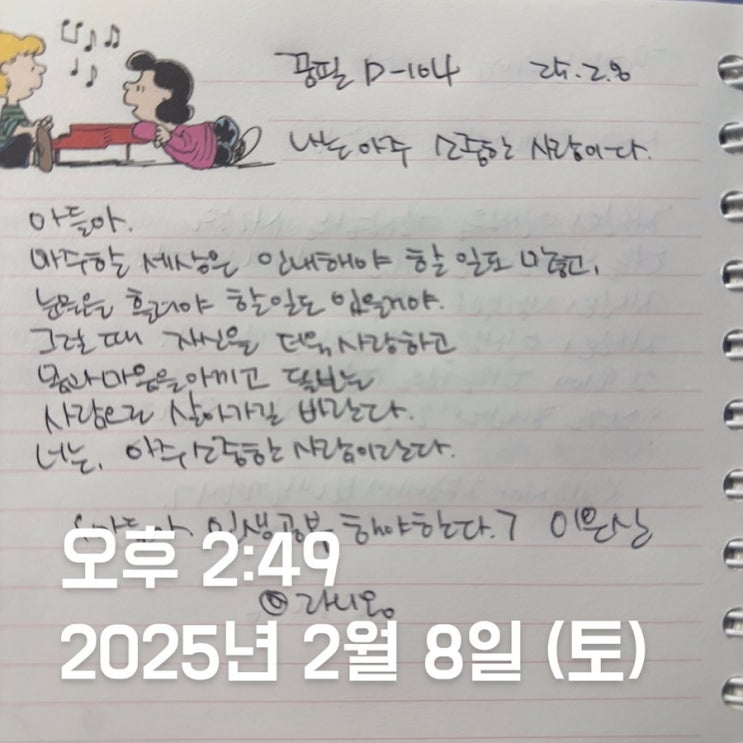 꿈필 D-104 25.2.8
나는 아주 소중한 사람이다.
아들아.
마주할 세상은 인내해야 할 일도 많고,
눈물을 흘려야 할일도 있을거야.
그럴 때 자신을 더욱 사랑하고
몸과 마음을 아끼고 돌보는
사람으로 살아가길 바란다.
너는, 아주 소중한 사람이란다.
아들아, 인생공부 해야한다.
오후 2:49
2025년 2월 8일 (토)